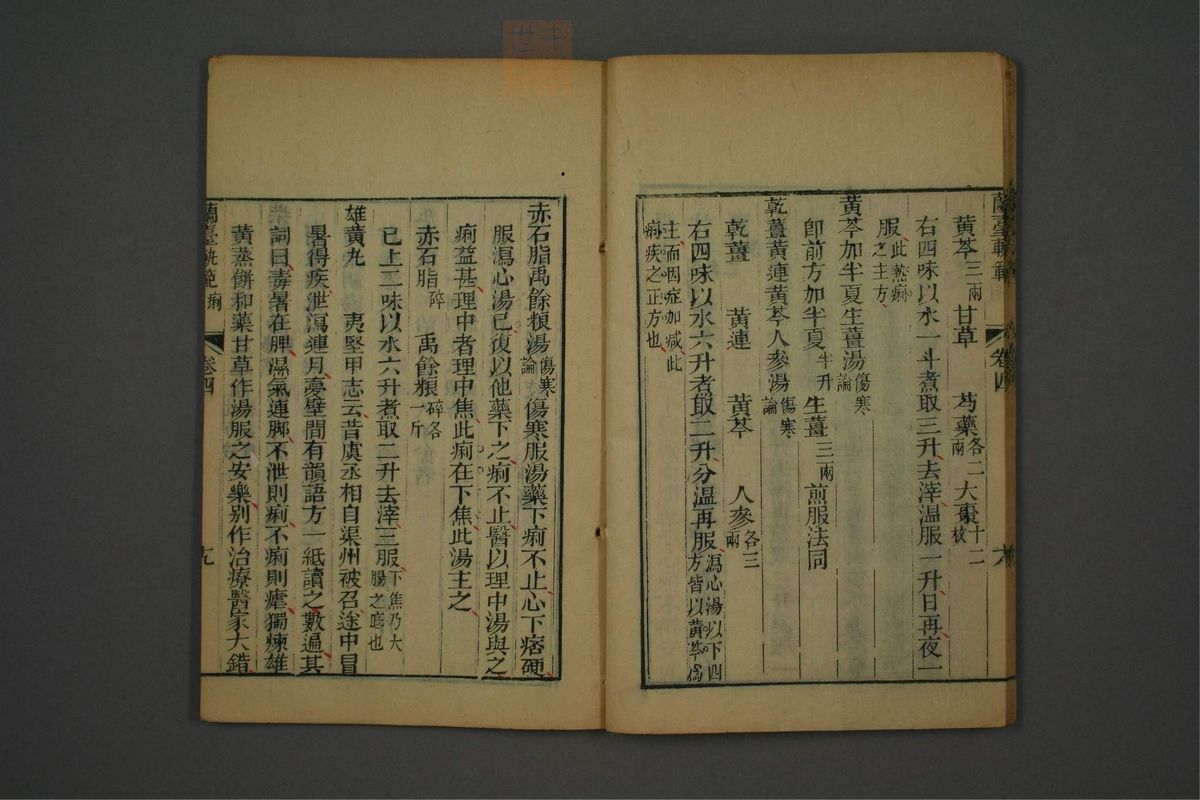 蘭臺軌範
卷四
黃芩三兩 甘草 芍藥各二兩 大棗十二枚
右四味以水一斗煮取三升去滓温服一升日再夜一
服此熱痢之主方
黃芩加半夏生薑湯傷寒論
卽前方加半夏半升 生薑三兩 煎服法同
乾薑黃連黃芩人參湯傷寒論
乾薑 黃連 黃芩 人參各三兩
右四味以水六升煮取二升分溫再服瀉心湯以下四方皆以黃芩爲
主而因症加減此痢疾之正方也
赤石脂禹餘粮湯傷寒論傷寒服湯藥下痢不止心下痞硬
服瀉心湯已復以他藥下之痢不止醫以理中湯與之
痢益甚理中者理中焦此痢在下焦此湯主之
赤石脂碎 禹餘粮碎各一斤
已上二味以水六升煮取二升去滓三服下焦乃大腸之底也
雄黃丸 夷堅甲志云昔虞丞相自渠州被召途中冒
暑得疾泄瀉連月夢壁間有韻語方一紙讀之數遍其
詞曰毒暑在脾濕氣連脚不泄則痢不痢則瘧獨煉雄
黃蒸餅和藥甘草作湯服之安樂别作治療醫家大錯
蘭臺軌範 痢
卷四
九